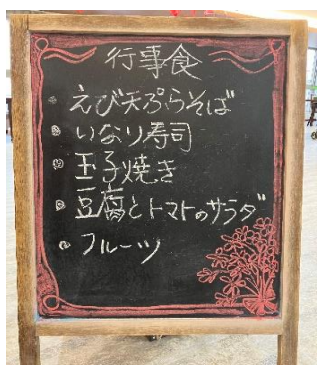 行事食
・えび天ぷらそば
・いなり寿司
・玉子焼き
・豆腐とトマトのサラダ
・フルーツ